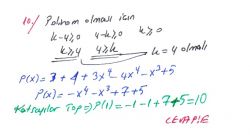 10/ Polinom olması için
k-4≥0 4-k≥0 k≥0
k≥4 4≥k k=4 olmalı
P(x)=3+4+3x⁴-4x⁴-x³+5
P(x)=-x⁴-x³+7+5
Katsayılar Top=>P(1)=-1-1+7+5=10
CEVAP:E